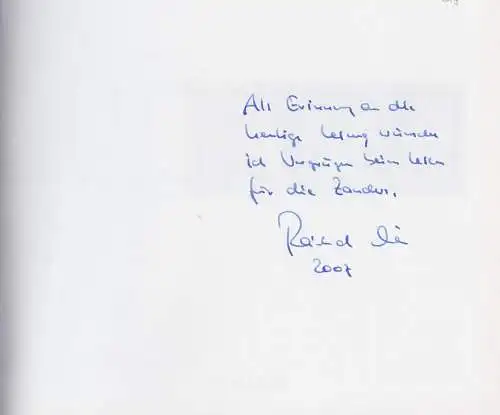 Als Erinnerung an die
heutige Lesung wünsche
ich Vergnügen beim Lesen
für die Zanders.
2007